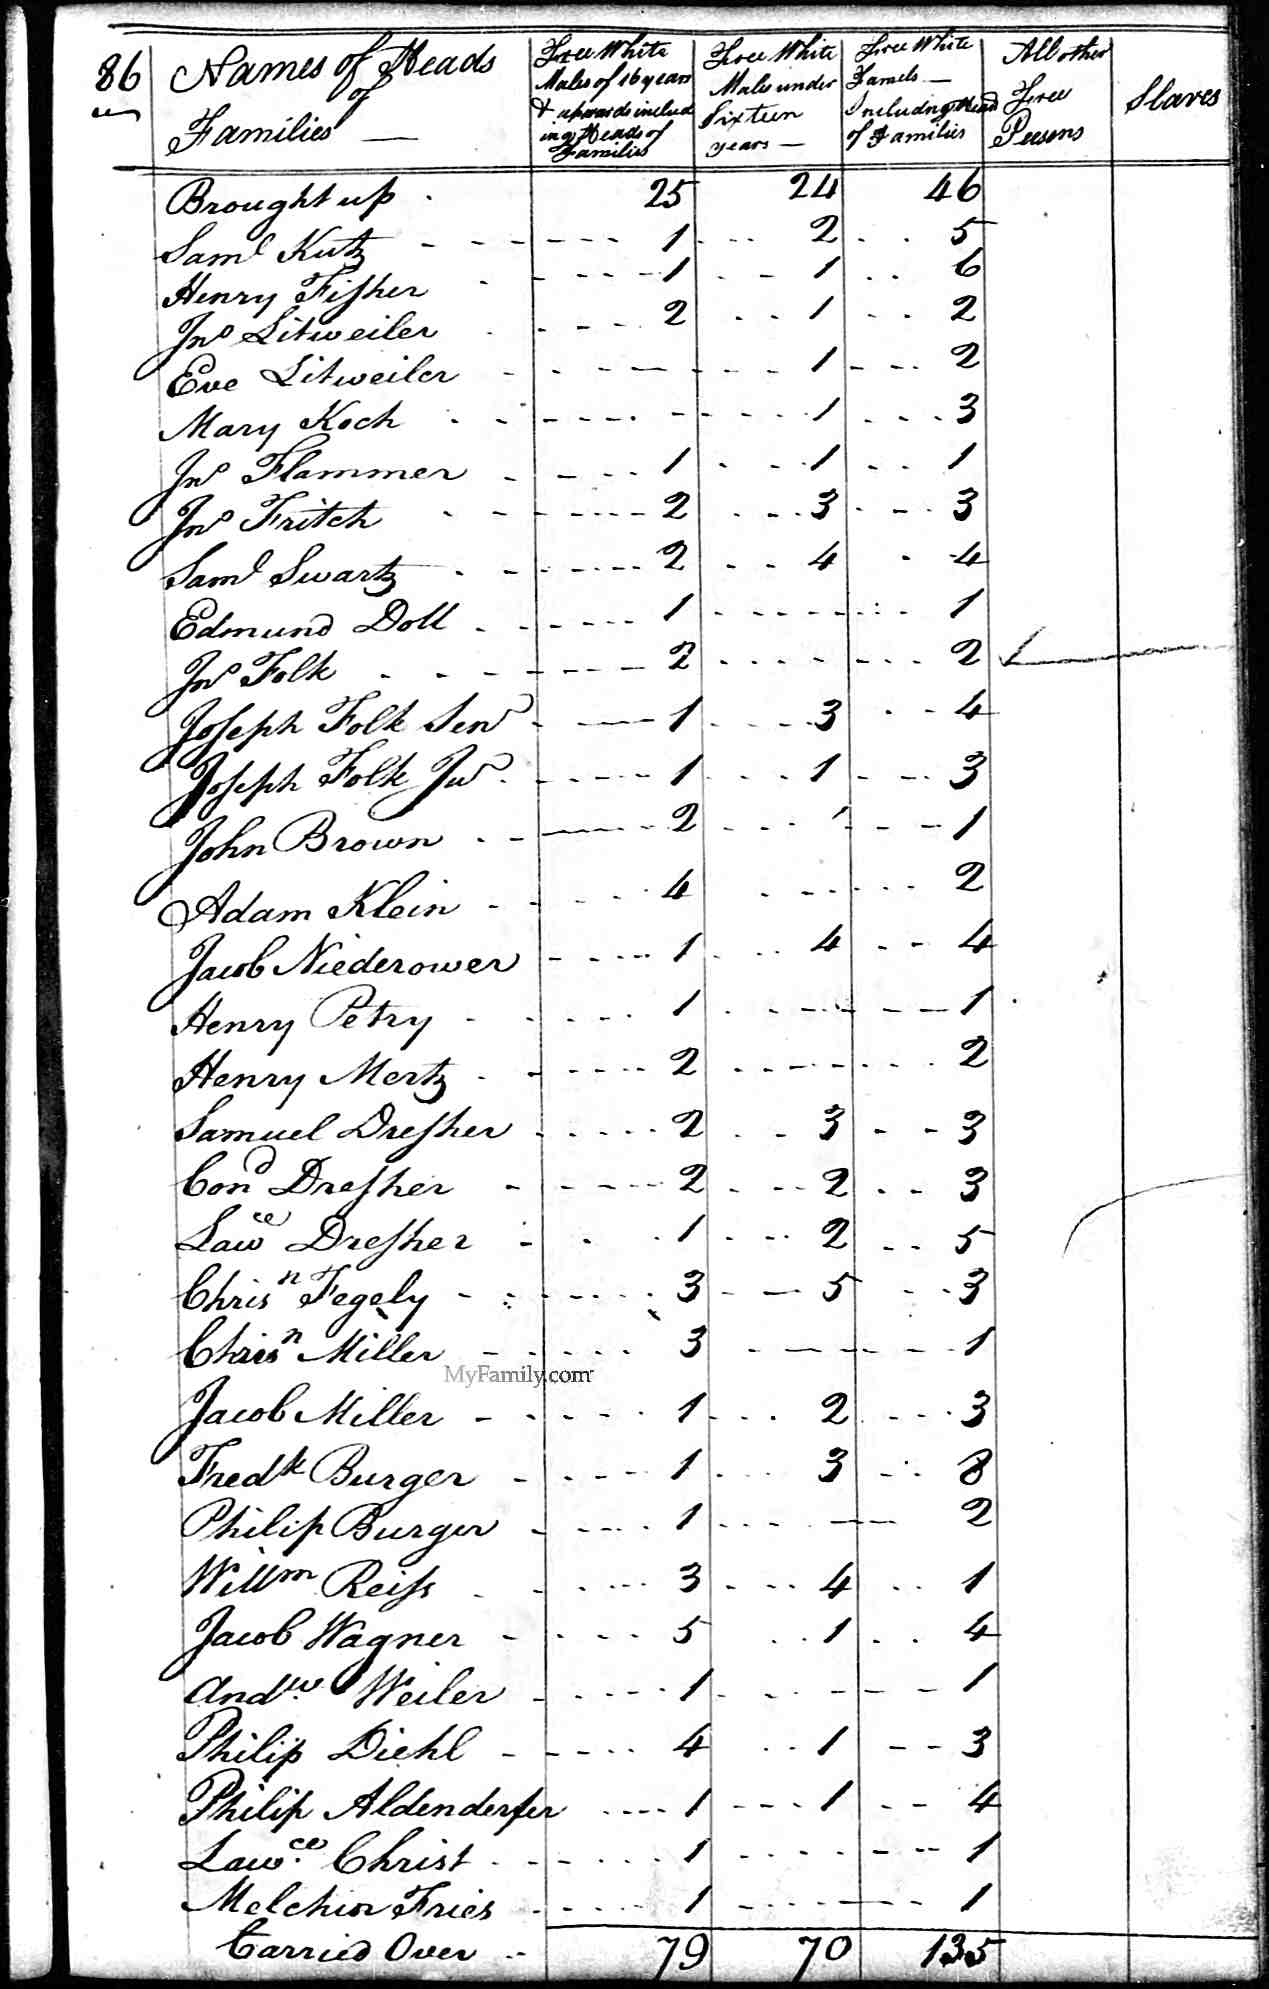 86 Names of Heads of Families — Free White Males of 16 years & upwards including Heads of Families Free White Males under Sixteen years — Free White Famels — Including Head of Families All other Free Persons Slaves
Brought up 25 24 46
Saml Kutz 1 2 5
Henry Fisher 1 1 6
Jno Litweiler 2 1 2
Eve Litweiler 1 2
Mary Koch 1 3
Jno Flammer 1 1 1
Jno Fritch 2 3 3
Saml Swartz 2 4 4
Edmund Doll 1 1
Jno Folk 2 2
Joseph Folk Senr 1 3 4
Joseph Folk Junr 1 1 3
John Brown 2 1
Adam Klein 4 2
Jacob Niederower 1 4 4
Henry Petry 1 1
Henry Mertz 2 2
Samuel Dresher 2 3 3
Cond Dresher 2 2 3
Lawce Dresher 1 2 5
Chrisn Fegely 3 5 3
Chrisn Miller 3 1
MyFamily.com
Jacob Miller 1 2 3
Fredk Burger 1 3 8
Philip Burger 1 2
Willm Reiss 3 4 1
Jacob Wagner 5 1 4
Andw Weiler 1 1
Philip Diehl 4 1 3
Philip Aldenderfer 1 1 4
Lawce Christ 1 1
Melchior Fries 1 1
Carried Over 79 70 135